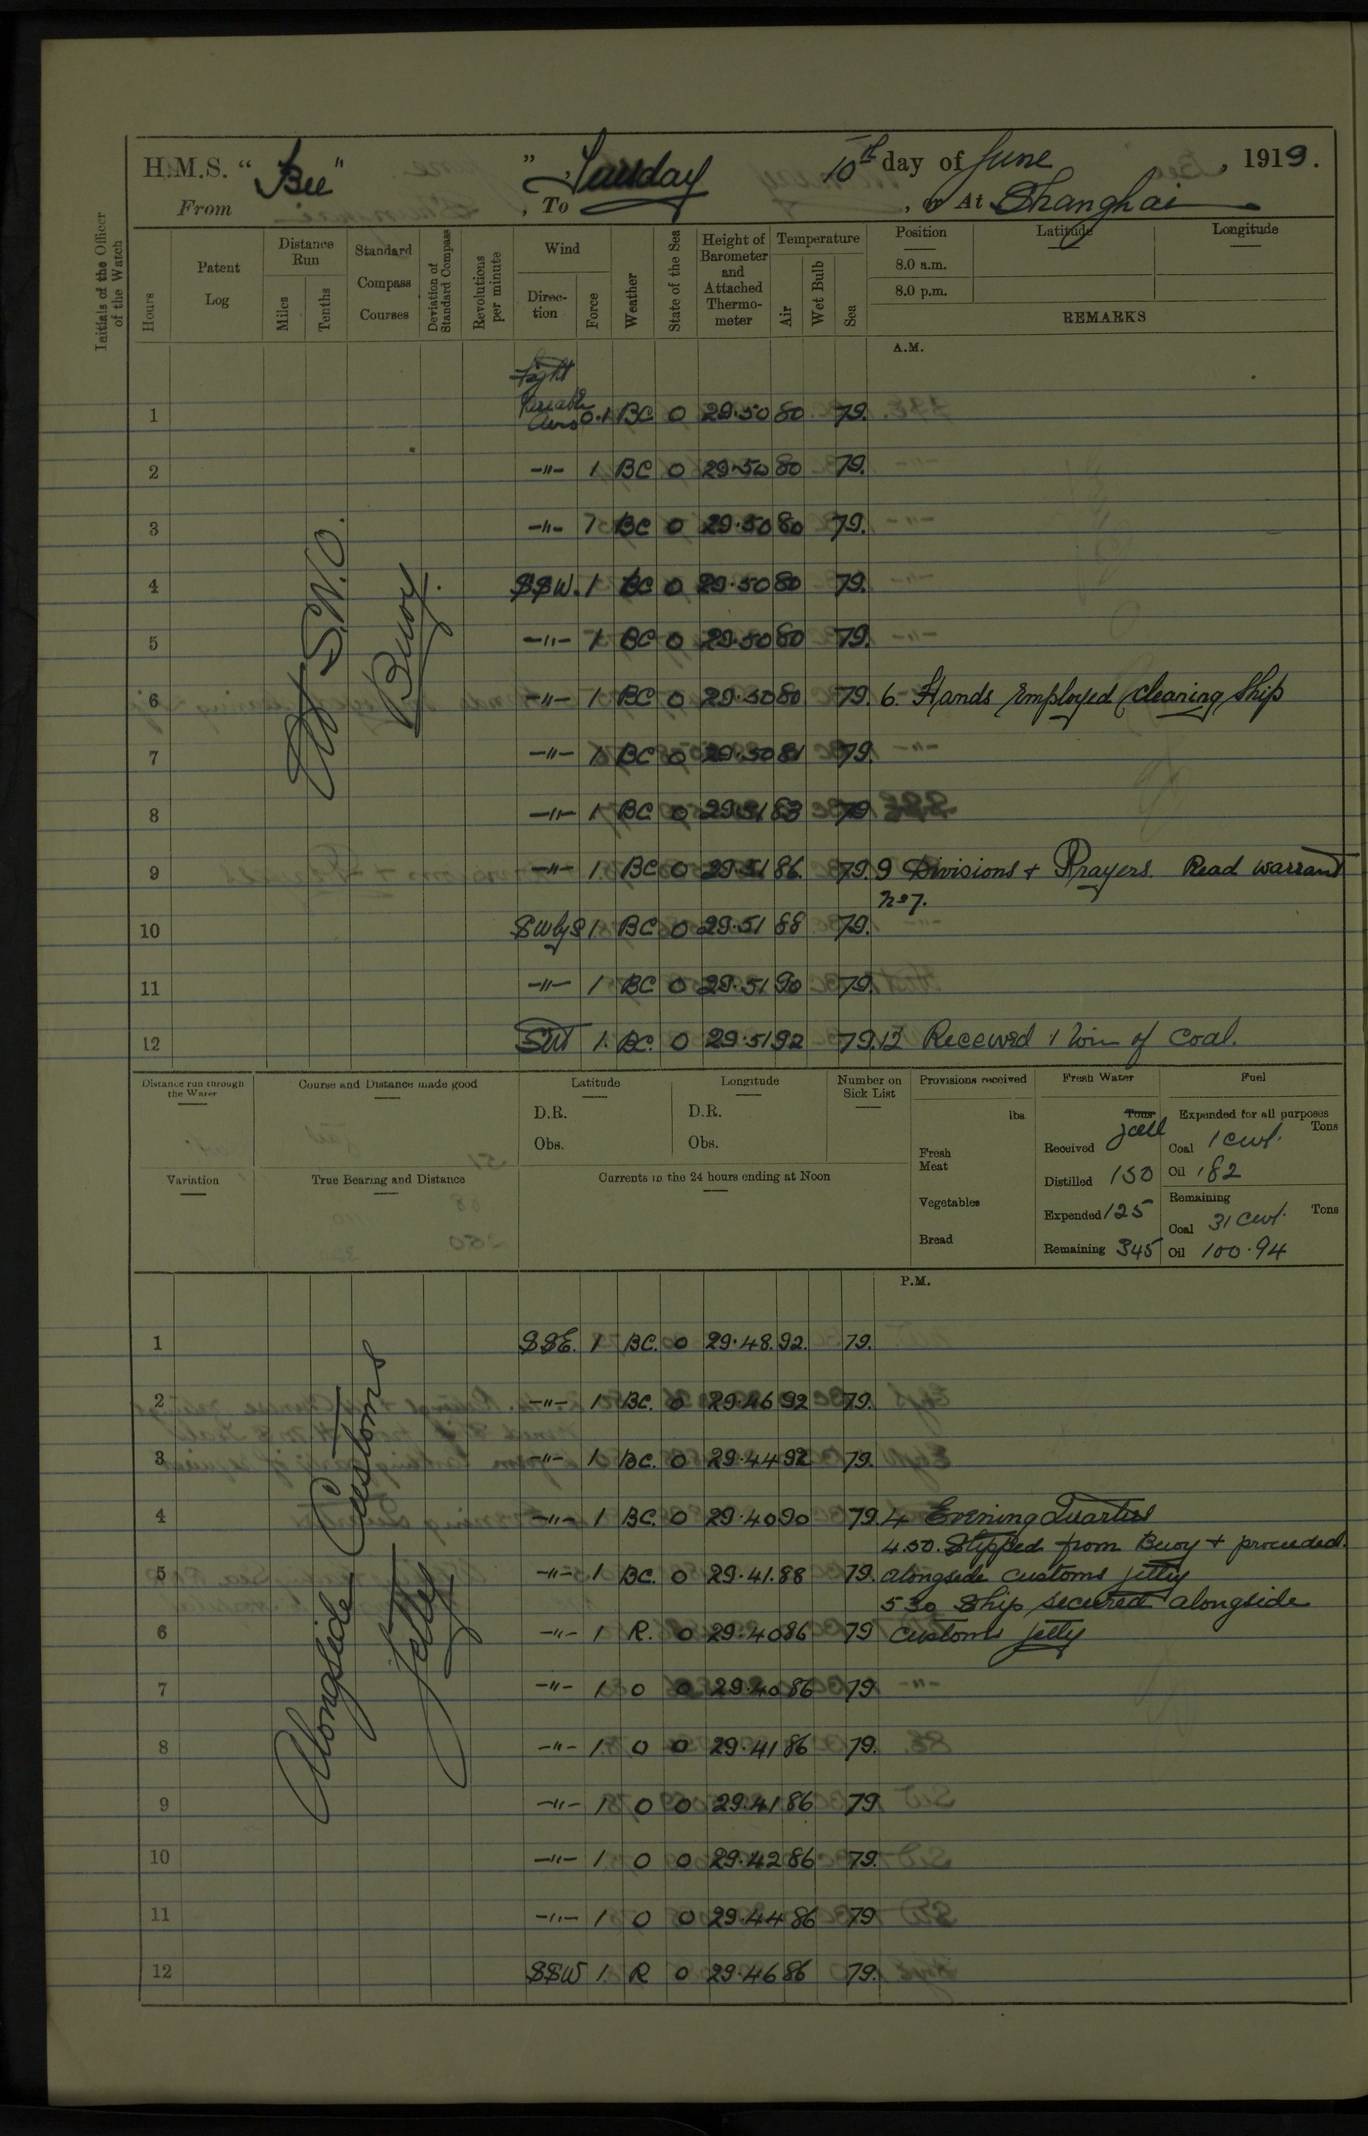 H.M.S. "Bee" " Tuesday 10th day of June, 1919.
From , To , or At Shanghai
Initials of the Officer of the Watch
Hours
Patent Log
Distance Run
Miles
Tenths
Standard Compass Courses
Deviation of Standard Compass
Revolutions per minute
Wind
Direction
Force
Weather
State of the Sea
Height of Barometer and Attached Thermometer
Temperature
Air
Wet Bulb
Sea
Position
8.0 a.m.
8.0 p.m.
Latitude
Longitude
REMARKS
A.M.
At S.N.O. Buoy.
1 Light Variable airs 0.1 BC 0 29.50 80 79.
2 -"- 1 BC 0 29.50 80 79.
3 -"- 1 BC 0 29.50 80 79.
4 SSW. 1 BC 0 29.50 80 79.
5 -"- 1 BC 0 29.50 80 79.
6 -"- 1 BC 0 29.50 80 79. 6. Hands employed cleaning Ship
7 -"- 1 BC 0 29.50 81 79.
8 -"- 1 BC 0 29.51 83 79
9 -"- 1 BC 0 29.51 86. 79. 9 Divisions + Prayers. Read warrant
No 7.
10 SWbyS 1 BC 0 29.51 88 79.
11 -"- 1 BC 0 29.51 90 79.
12 SW 1. BC. 0 29.51 92 79. 12 Received 1 Ton of Coal.
Distance run through the Water
Course and Distance made good
Latitude
D.R.
Obs.
Longitude
D.R.
Obs.
Number on Sick List
Variation
True Bearing and Distance
Currents in the 24 hours ending at Noon
Provisions received
lbs.
Fresh Meat
Vegetables
Bread
Fresh Water
Tons
Received
Distilled 150
Expended 125
Remaining 345
Fuel
Expended for all purposes
Tons
Coal 1 cwt.
Oil .182
Remaining
Tons
Coal 31 cwt.
Oil 100.94
P.M.
Alongside Customs Jetty
1 SSE. 1 BC. 0 29.48. 92. 79.
2 -"- 1 BC. 0 29.46 92 79.
3 -"- 1 BC. 0 29.44 92 79.
4 -"- 1 BC. 0 29.40 90 79. 4 Evening Quarters
4.50. Slipped from Buoy + proceeded
5 -"- 1 BC. 0 29.41. 88 79. alongside customs jetty
5 30 Ship secured alongside
6 -"- 1 R. 0 29.40 86 79 customs jetty
7 -"- 1 0 0 29.40 86 79
8 -"- 1. 0 0 29.41 86 79.
9 -"- 1 0 0 29.41 86 79
10 -"- 1 0 0 29.42 86 79.
11 -"- 1 0 0 29.44 86 79
12 SSW 1. R 0 29.46 86 79.